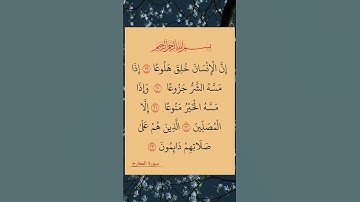 بسم الله الرحمن الرحيم
إِنَّ الْإِنْسَانَ خُلِقَ هَلُوعًا ١٩ إِذَا
مَسَّهُ الشَّرُّ جَزُوعًا ٢٠ وَإِذَا
مَسَّهُ الْخَيْرُ مَنُوعًا ٢١ إِلَّا
الْمُصَلِّينَ ٢٢ الَّذِينَ هُمْ عَلَىٰ
صَلَاتِهِمْ دَائِمُونَ ٢٣
سورة المعارج